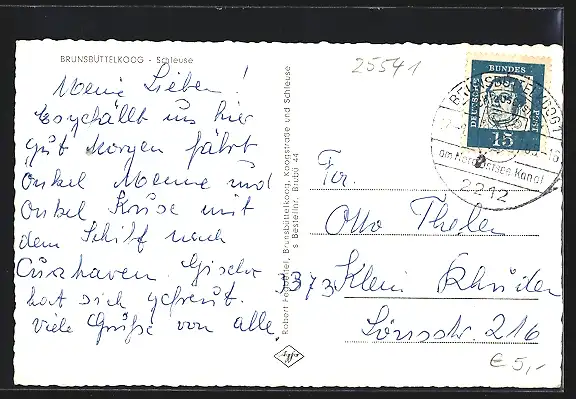 BRUNSBÜTTELKOOG - Schleuse
Meine Lieben!
Es gefällt uns hier
gut Morgen fährt
Onkel Menne und
Onkel Kruse mit
dem Schiff nach
Cuxhaven.
hat sich gefreut.
viele Grüße von alle.
Brunsbüttelkoog, Koogstraße und Schleuse
Bestellnr. Brubü 44
25541
DEUTSCHE BUNDESPOST
15
am Nord-Ostsee-Kanal
2212
Otto Thelen
3373 Klein Rhüden
Lönsstr. 216
€ 5,-